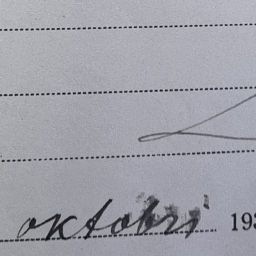 oktobri 193